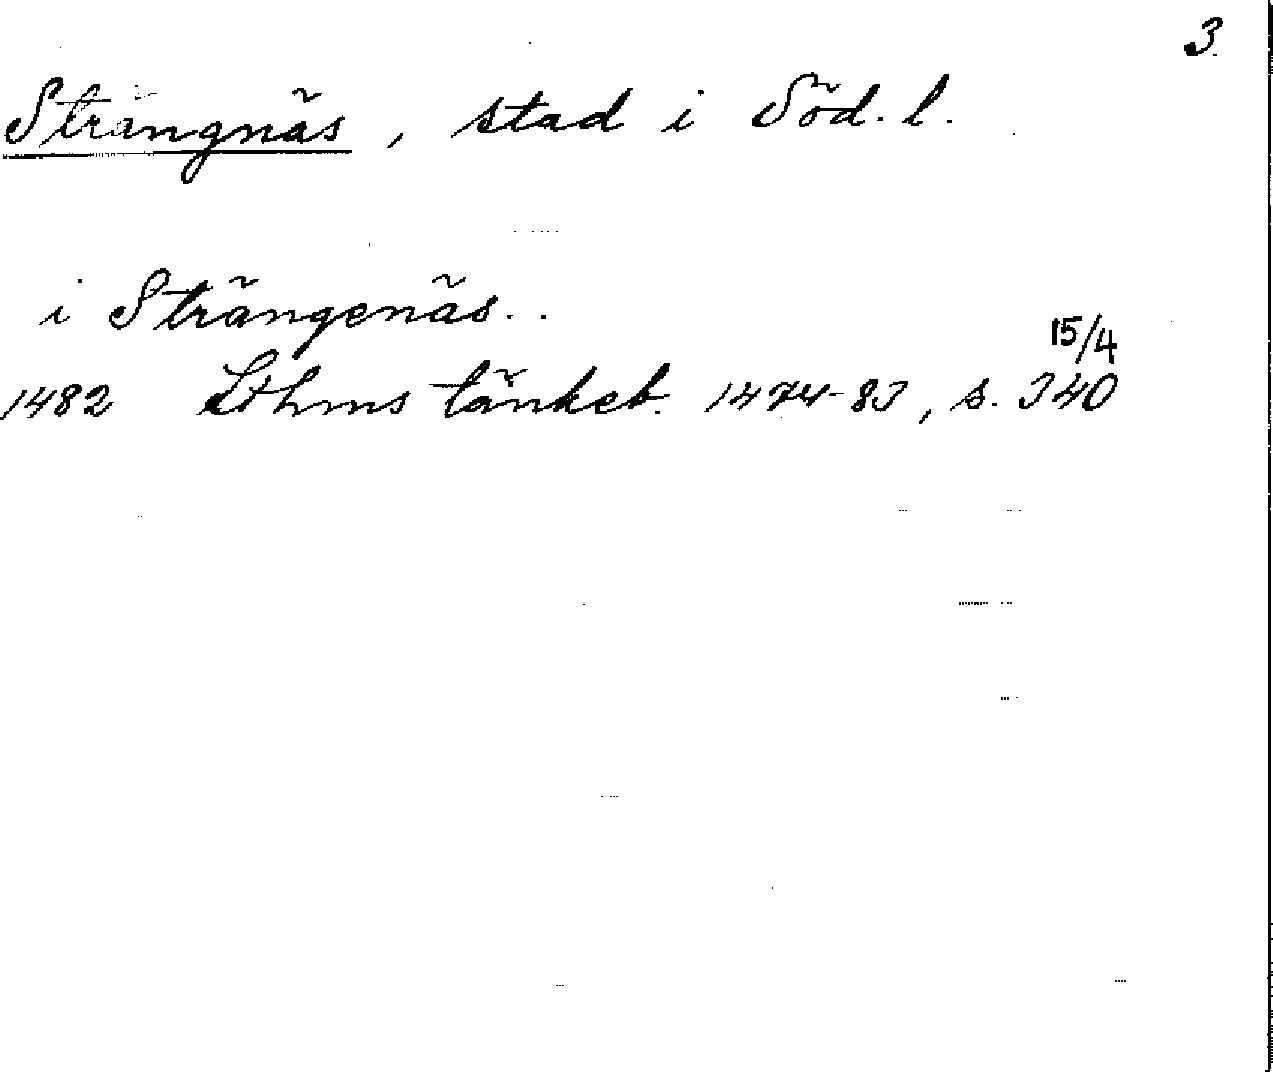 3.
Strängnäs, stad i Söd. l.
i Strängenäs..
15/4
1482 Sthms tänkeb. 1474-83, s. 340